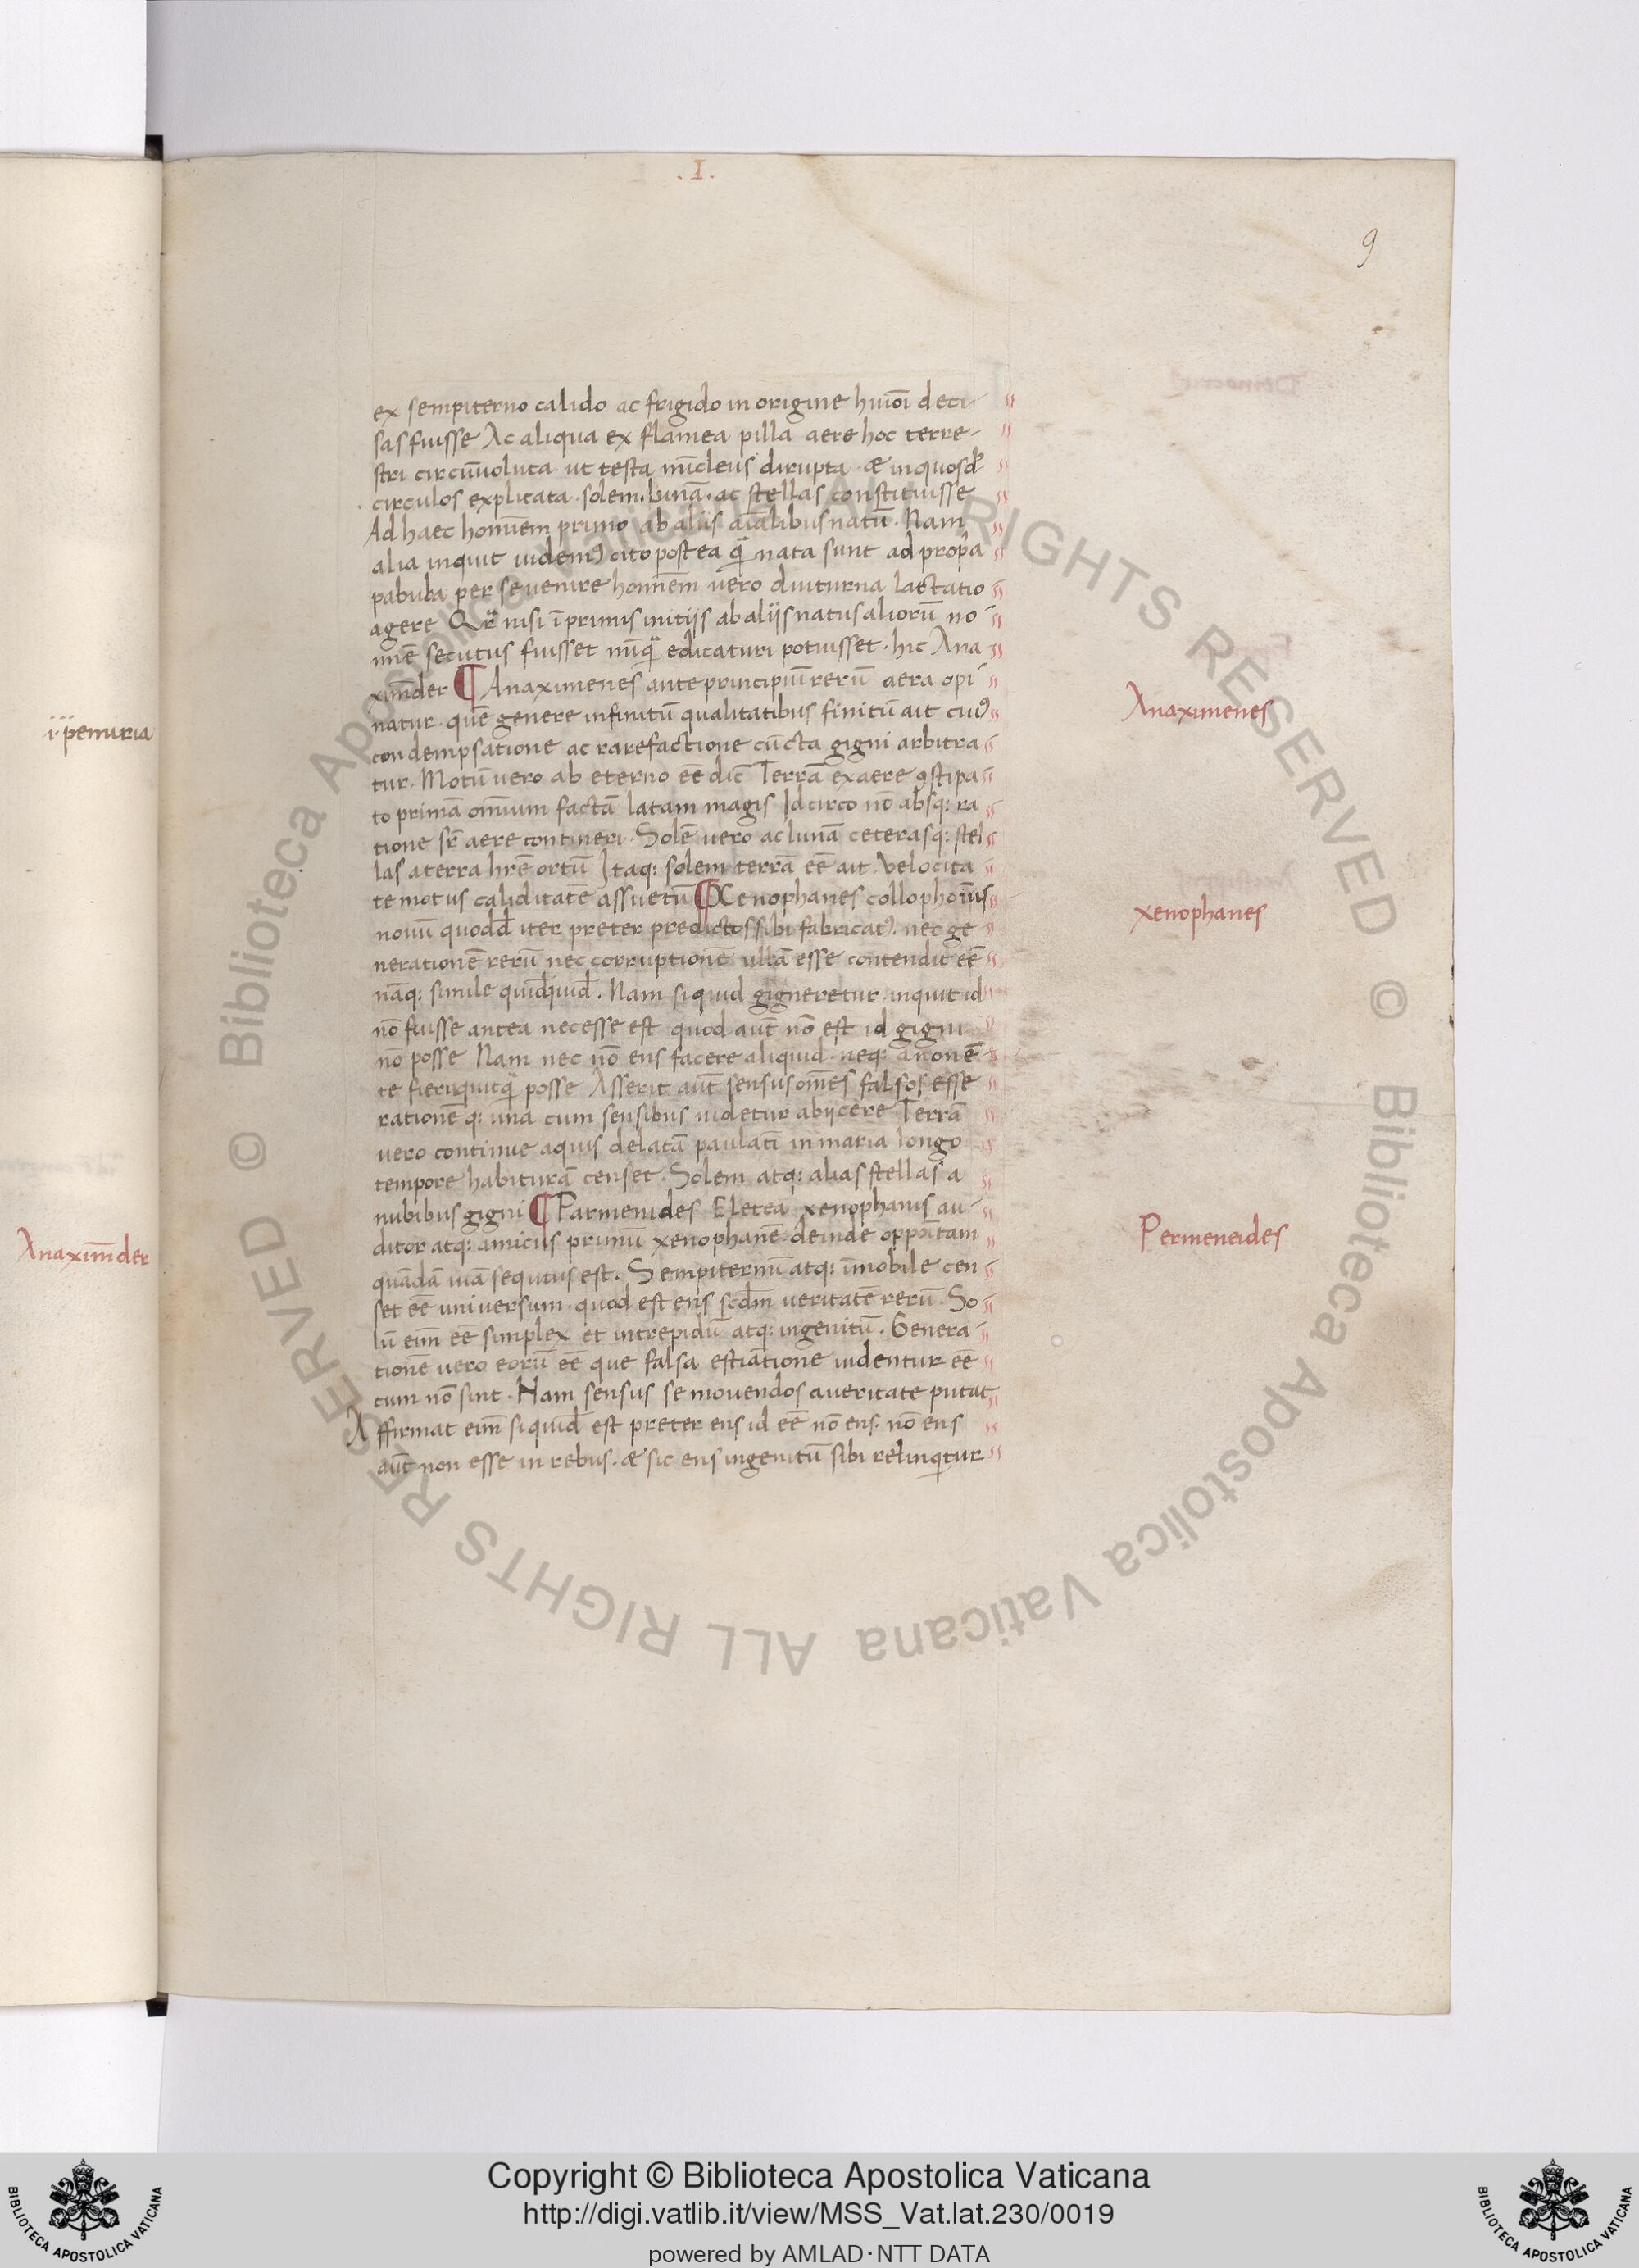 .I.
9
ex sempiterno calido ac frigido in origine huiōi deci-
sas fuisse Ac aliqua ex flamea pilla aere hoc terre-
stri circūuoluta ut testa nūcleus dirupta & inquosđ
circulos explicata. solem. Lunā. ac stellas constituisse
Ad haec hominem primo ab aliis aīalibus natū. Nam
alia inquit uident cito postea q̄ nata sunt ad propa
pabula per se uenire hominem uero diuturna lactatio
agere Qr̄ nisi ī primis initijs ab alijs natus aliorū no-
mīe secutus fuisset nūq̄ edicaturi potuisset. hic Ana
ximāder ¶ Anaximenes ante principiū rerū aera opi
natur. quē genere infinitū qualitatibus finitū ait cuiꝰ
condempsatione ac rarefactione cūcta gigni arbitra
tur. Motū uero ab eterno eē dic̄ Terrā ex aere ꝯstipa
to primā omīum factā latam magis Idcirco nō absq; ra
tione sr̄ aere contineri. Solē uero ac lunā ceterasq; stel
las a terra hr̄e ortū Itaq; solem terrā eē ait. Velocita
te motus caliditatē assuetū ¶ Xenophanes collophonīus
nouū quoddā iter preter predictos sibi fabricatꝰ. nec ge
nerationē rerū nec corruptionē ullā esse contendit eē
nāq; simile quidquid. Nam si quid gigneretur. inquit id
nō fuisse antea necesse est quod aūt nō est id gigni
nō posse Nam nec nō ens facere aliquid. neq; a nō onē
te fieri quicq̄ posse Asserit aūt sensus omēs falsos esse
rationēq; una cum sensibus uidetur abijcere Terrā
uero continue aquis delatā paulatī in maria longo
tempore habiturā censet. Solem atq; alias stellas a
nubibus gigni ¶ Parmenides Eletea xenophanis au-
ditor atq; amicus primū xenophanē deinde oppoītam
quādā uiā sequtus est. Sempiternū atq; īmobile cen
set eē uniuersum. quod est ens scd̄m ueritatē rerū. So
lū eīm eē simplex et intrepidū atq; ingenitū. Genera
tionē uero eorū eē que falsa estiātione uidentur eē
cum nō sint. Nam sensus se mouendos a ueritate putat
Affirmat eīm si quid est preter ens id eē nō ens. nō ens
aūt non esse in rebus. & sic ens ingenitū sibi relinqtur
Anaximenes
xenophanes
Permeneides
i penuria
Anaximāder
Copyright © Biblioteca Apostolica Vaticana
http://digi.vatlib.it/view/MSS_Vat.lat.230/0019
powered by AMLAD·NTT DATA
BIBLIOTECA APOSTOLICA VATICANA
BIBLIOTECA APOSTOLICA VATICANA
© Biblioteca Apostolica Vaticana ALL RIGHTS RESERVED
© Biblioteca Apostolica Vaticana ALL RIGHTS RESERVED